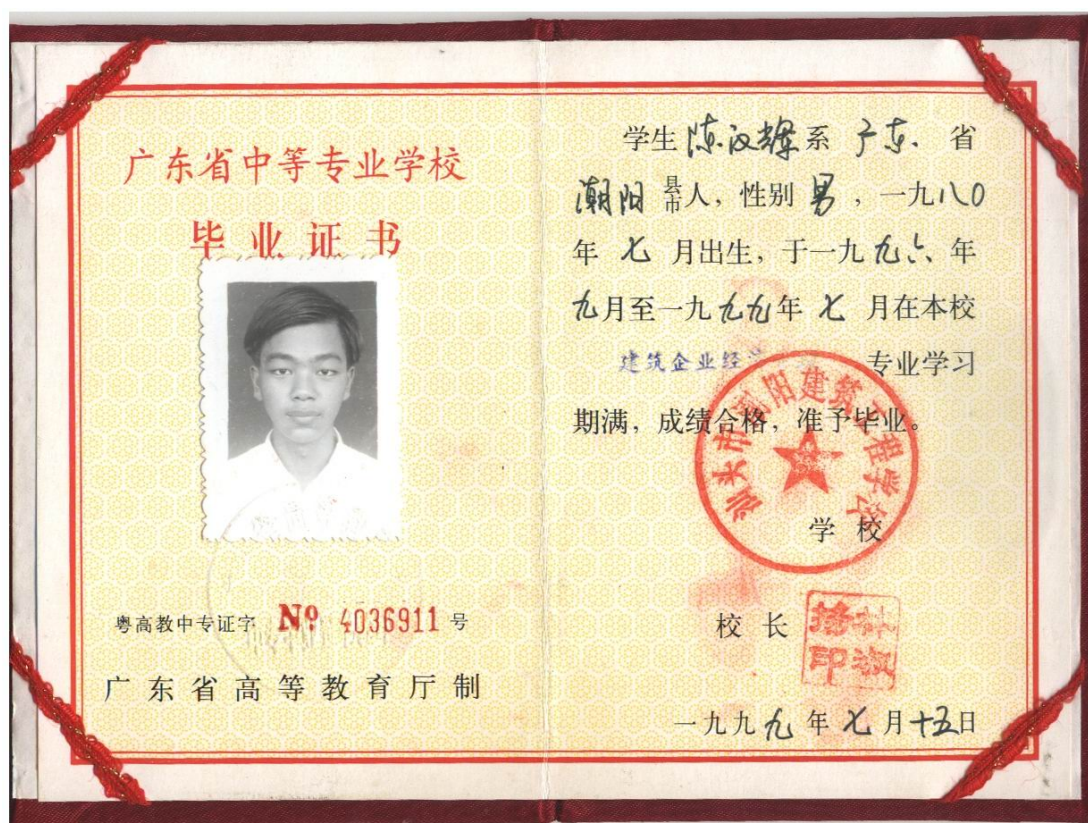 广东省中等专业学校
毕业证书
粤高教中专证字 № 4036911 号
广东省高等教育厅制
学生陈汉辉系广东省
潮阳县市人,性别男,一九八0
年七月出生,于一九九六年
九月至一九九九年七月在本校
建筑企业经 专业学习
期满,成绩合格,准予毕业。
汕头市潮阳建筑工程学校
学校
校长
林淑
印
一九九九年七月十五日